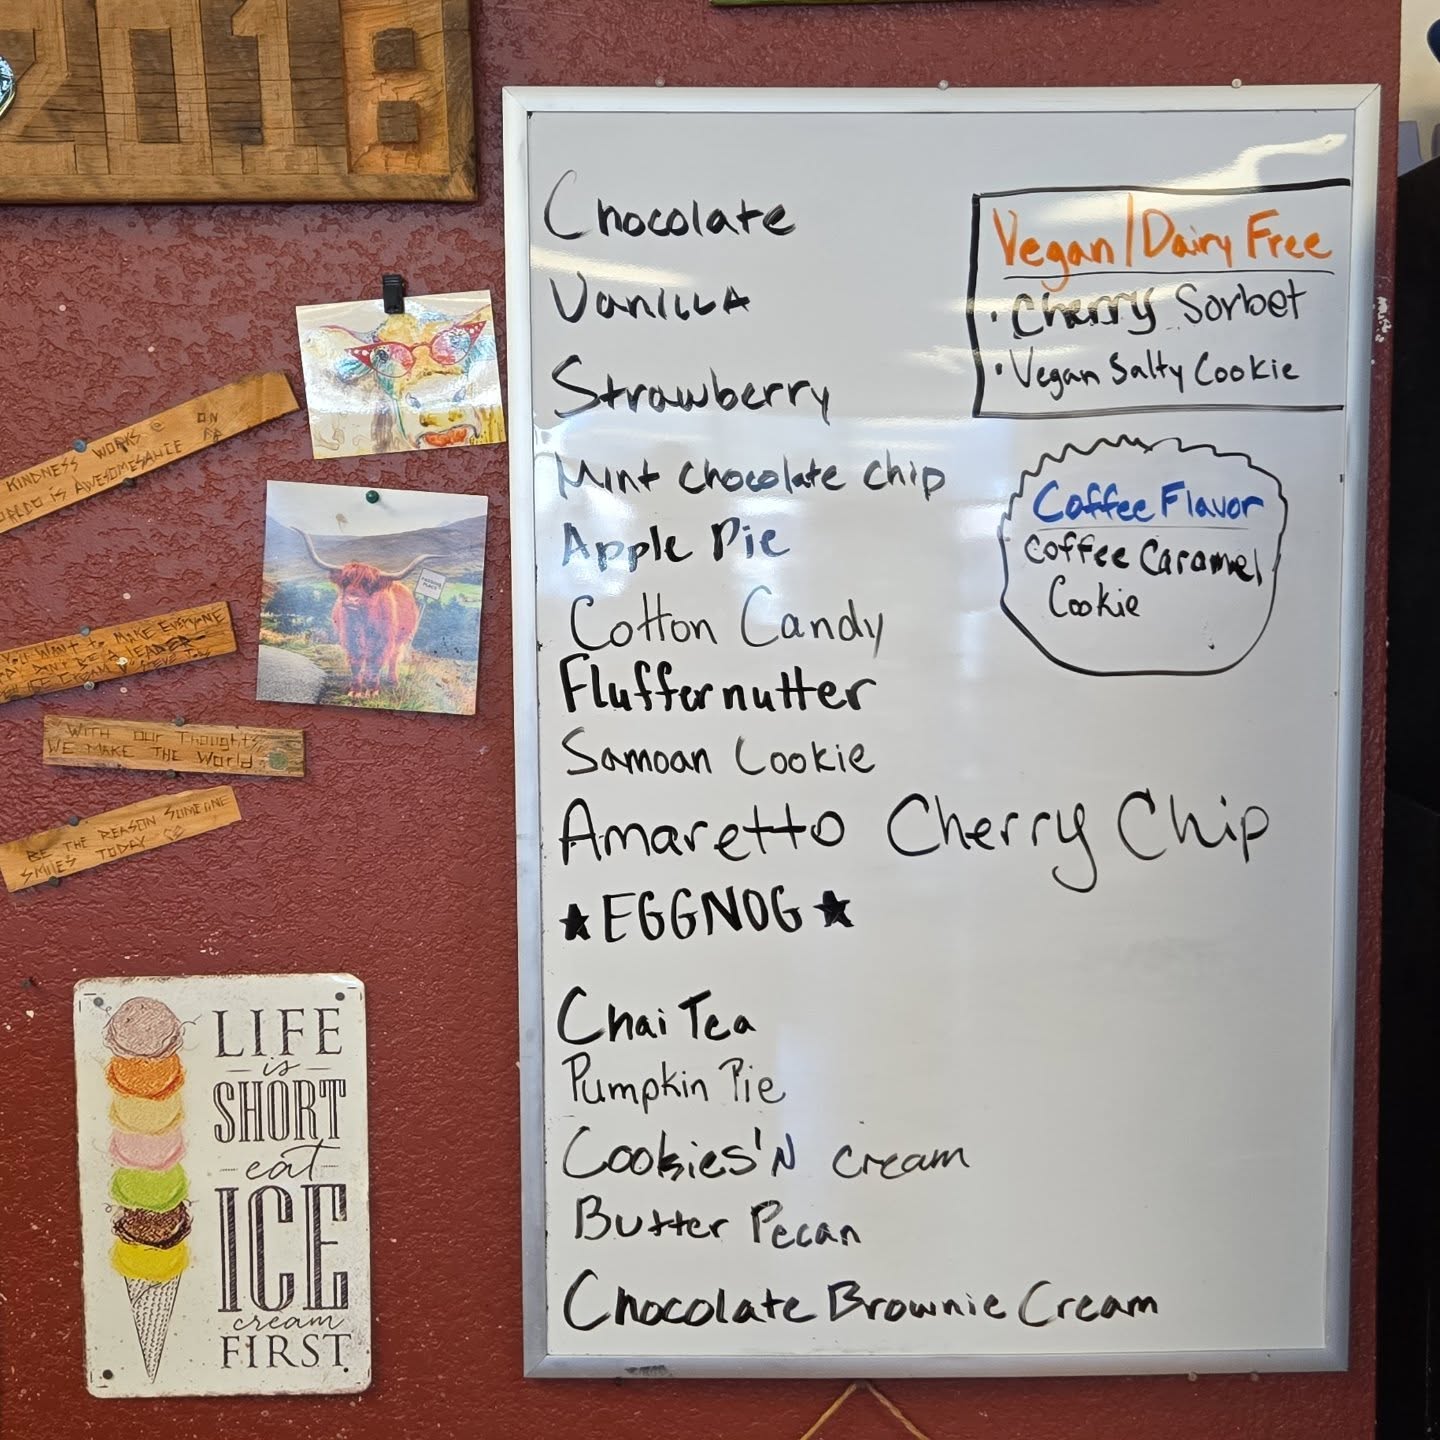 2018
Chocolate
Vanilla
Strawberry
Mint Chocolate Chip
Apple Pie
Cotton Candy
Fluffernutter
Samoan Cookie
Amaretto Cherry Chip
★ EGGNOG ★
Chai Tea
Pumpkin Pie
Cookies 'N cream
Butter Pecan
Chocolate Brownie Cream
Vegan/Dairy Free
• Cherry Sorbet
• Vegan Salty Cookie
Coffee Flavor
Coffee Caramel
Cookie
KINDNESS WORKS
IS AWESOMESAUCE
YOU WANT TO MAKE EVERYONE
DON'T BE A LEADER
WITH OUR THOUGHTS
WE MAKE THE WORLD
BE THE REASON SOMEONE
SMILES TODAY
PASSING
PLACE
LIFE
is
SHORT
eat
ICE
cream
FIRST